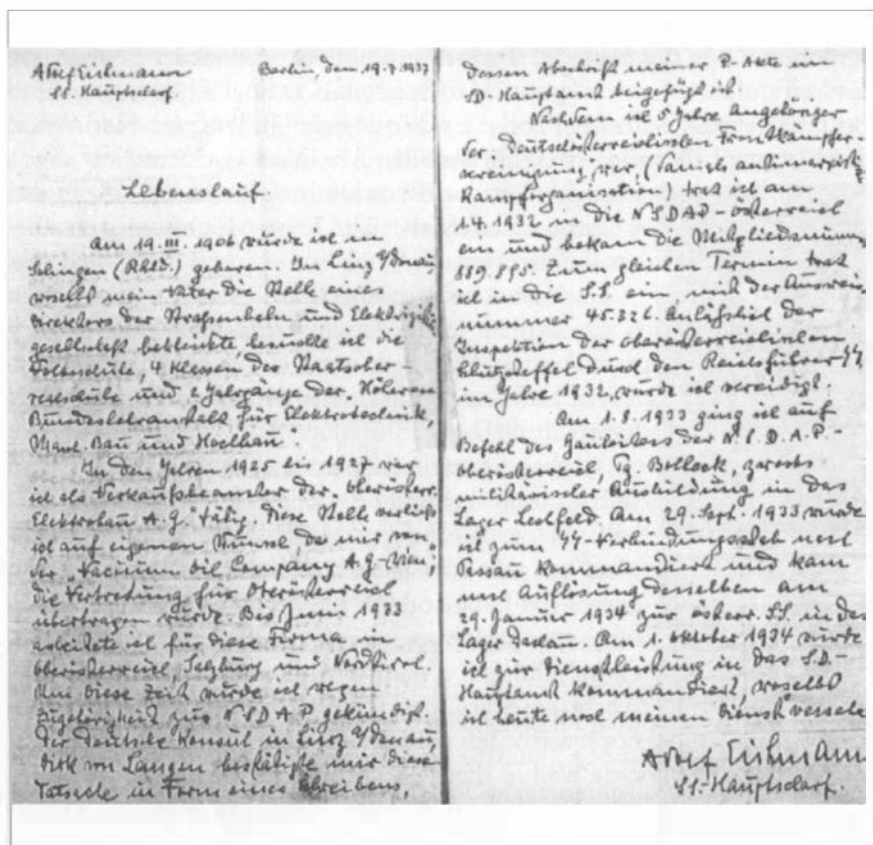 Adolf Eichmann
SS. Hauptscharf.
Berlin, den 19.7.1937
Lebenslauf
Am 19. III. 1906 wurde ich in
Solingen (Rhld.) geboren. In Linz a/Donau,
woselbst mein Vater die Stelle eines
Direktors der Strassenbahn und Elektrizitäts-
gesellschaft bekleidete besuchte ich die
Volksschule, 4 Klassen der Staatsober-
realschule und 2 Jahrgänge der "Höheren
Bundeslehranstalt für Elektrotechnik,
Masch. Bau und Hochbau.
In den Jahren 1925 bis 1927 war
ich als Verkaufsbeamter der "Oberösterr.
Elektrobau A.G." tätig. Diese Stelle verliess
ich auf eigenen Wunsch, da mir von
der "Vacuum Oil Company A.G.-Wien",
die Vertretung für Oberösterreich
übertragen wurde. Bis Juni 1933
arbeitete ich für diese Firma in
Oberösterreich, Salzburg und Nordtirol.
Um diese Zeit wurde ich wegen
Zugehörigkeit zur NSDAP gekündigt.
Der Deutsche Konsul in Linz a/Donau,
Dirk von Langen bestätigte mir diese
Tatsache in Form eines Schreibens,
dessen Abschrift meiner P-Akte im
SD-Hauptamt beigefügt ist.
Nachdem ich 5 Jahre Angehöriger
der Deutschösterreichischen Frontkämpfer-
vereinigung war, (damals antimarxist.
Kampforganisation) trat ich am
1.4.1932 in die NSDAP-Österreich
ein und bekam die Mitgliedsnum.
889.895. Zum gleichen Termin trat
ich in die S.S. ein, mit der Ausweis-
nummer 45.326. Anlässlich der
Inspektion der oberösterreichischen
Schutzstaffel durch den Reichsführer SS,
im Jahre 1932, wurde ich vereidigt.
Am 1.8.1933 ging ich auf
Befehl des Gauleiters der N.S.D.A.P.-
Oberösterreich, Pg. Bolleck, zwecks
militärischer Ausbildung in das
Lager Lechfeld. Am 29. Sept. 1933 wurde
ich zum SS-Verbindungsstab nach
Passau kommandiert und kam
nach Auflösung desselben am
29. Januar 1934 zur österr. SS. in das
Lager Dachau. Am 1. Oktober 1934 wurde
ich zur Dienstleistung in das S.D.-
Hauptamt kommandiert, woselbst
ich heute noch meinen Dienst versehe
Adolf Eichmann
SS.-Hauptscharf.